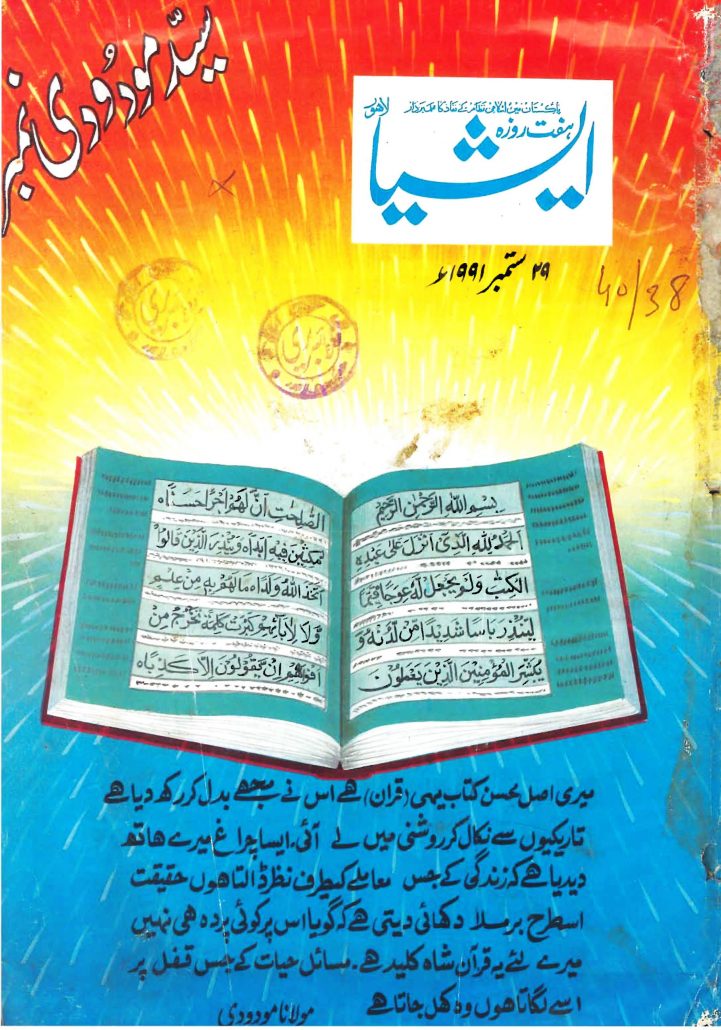 سیّد مودُودی نمبر
پاکستان میں اسلامی نظام کے نفاذ کا علمبردار
ہفت روزہ
لاہور
ایشیا
۲۹ ستمبر ۱۹۹۱ء
40/38
بِسۡمِ اللّٰهِ الرَّحۡمٰنِ الرَّحِیۡمِ
اَلۡحَمۡدُ لِلّٰهِ الَّذِیۡۤ اَنۡزَلَ عَلٰی عَبۡدِهِ
الۡکِتٰبَ وَلَمۡ یَجۡعَلۡ لَّهٗ عِوَجًا قَیِّمًا
لِّیُنۡذِرَ بَاۡسًا شَدِیۡدًا مِّنۡ لَّدُنۡهُ وَ
یُبَشِّرَ الۡمُؤۡمِنِیۡنَ الَّذِیۡنَ یَعۡمَلُوۡنَ
الصّٰلِحٰتِ اَنَّ لَهُمۡ اَجۡرًا حَسَنًا ہ
مّٰکِثِیۡنَ فِیۡهِ اَبَدًا ہ وَّیُنۡذِرَ الَّذِیۡنَ قَالُوا
اتَّخَذَ اللّٰهُ وَلَدًا ہ مَا لَهُمۡ بِهٖ مِنۡ عِلۡمٍ
وَّلَا لِاٰبَآئِهِمۡ کَبُرَتۡ کَلِمَةً تَخۡرُجُ مِنۡ
اَفۡوَاهِهِمۡ اِنۡ یَّقُوۡلُوۡنَ اِلَّا کَذِبًا ہ
میری اصل محسن کتاب یہی (قرآن) ہے اس نے مجھے بدل کر رکھ دیا ہے
تاریکیوں سے نکال کر روشنی میں لے آئی۔ ایسا چراغ میرے ہاتھ
دیدیا ہے کہ زندگی کے جس معاملے کیطرف نظر ڈالتا ہوں حقیقت
اسطرح برملا دکھائی دیتی ہے کہ گویا اس پر کوئی پردہ ہی نہیں
میرے لئے یہ قرآن شاہ کلید ہے۔ مسائل حیات کے جس قفل پر
اسے لگاتا ہوں وہ کھل جاتا ہے
مولانا مودودی